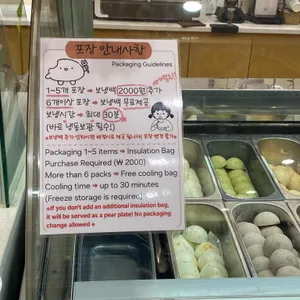 포장 안내사항
Packaging Guidelines
1~5개 포장 → 보냉백 2000원 추가
6개이상 포장 → 보냉백 무료제공
보냉시간 → 최대 30분
(바로 냉동보관 필수!)
Packaging 1~5 items → Insulation Bag
Purchase Required (₩ 2000)
More than 6 packs → Free cooling bag
Cooling time → up to 30 minutes
(Freeze storage is required.)
+If you don't add an additional insulation bag,
it will be served as a pear plate! No packaging
change allowed+